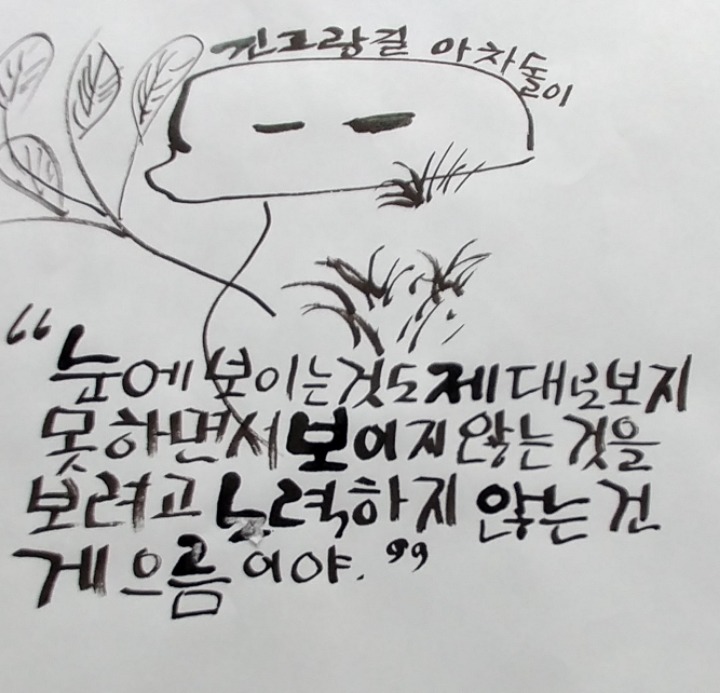 진그랑걸 아차둘이
“눈에 보이는것도 제대로보지
못하면서 보이지 않는 것을
보려고 노력하지 않는 건
게으름이야.”